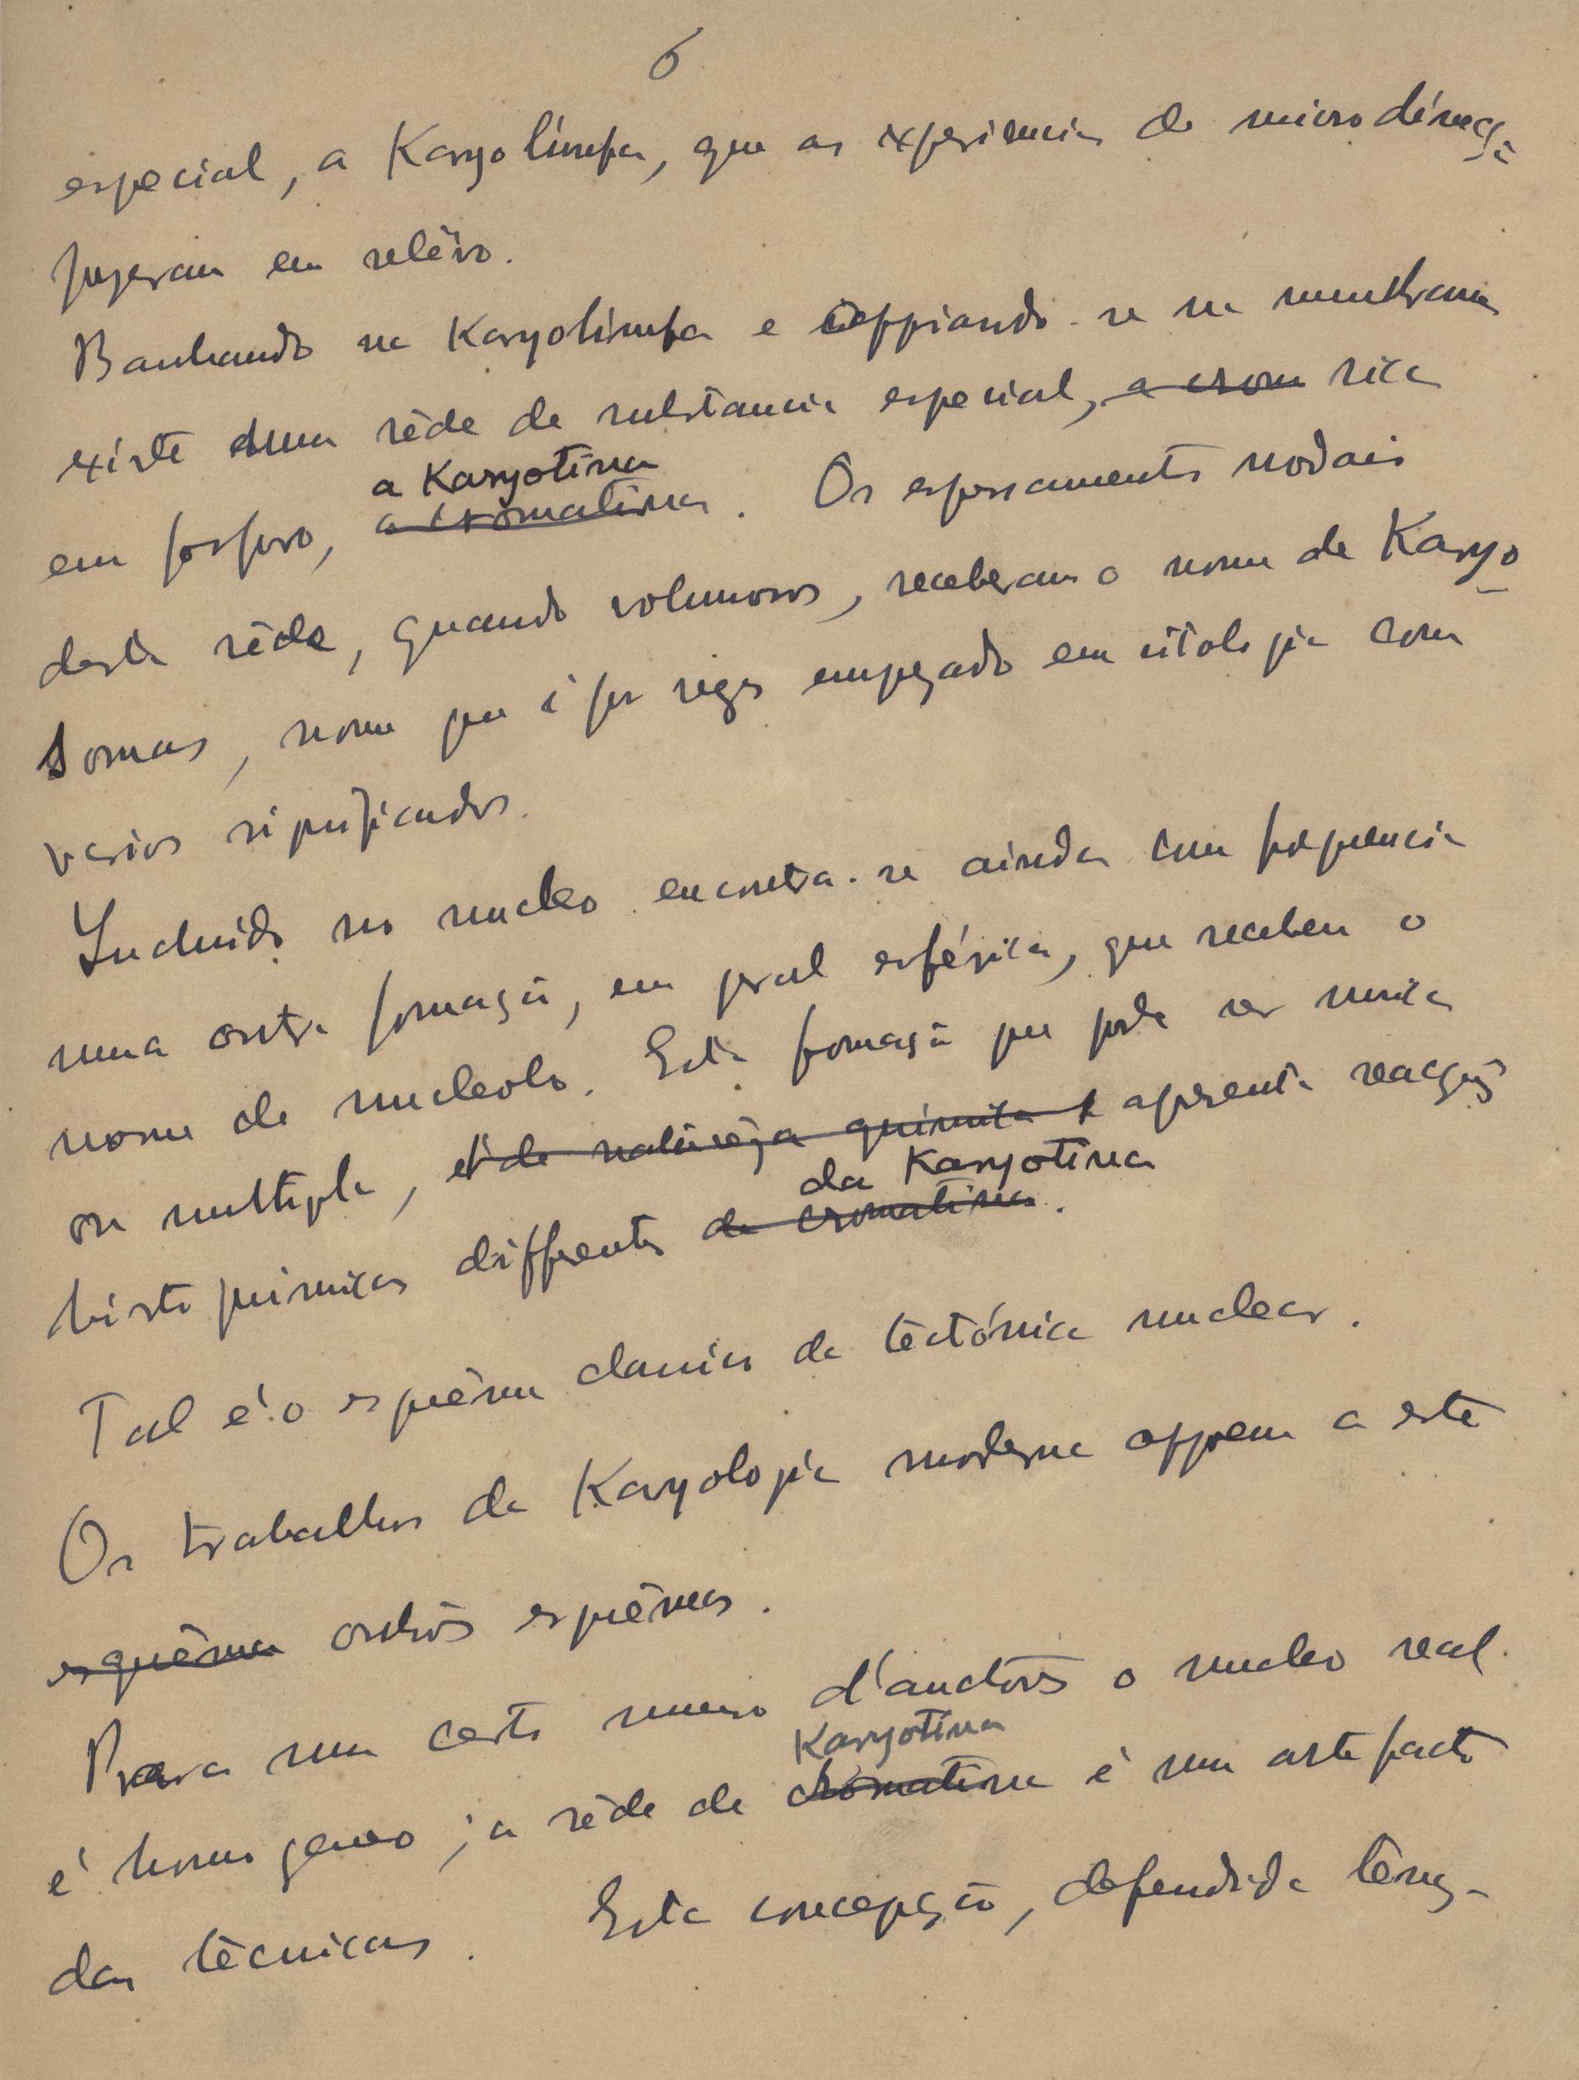 6
especial, a Karyolinfa, que as experiencias de microdissecção
puzeram em relêvo.
Banhando na Karyolinfa e appoiando-se na membrana
existe uma rêde de substancia especial, a crom rica
a Karyotina
em fosforo, a cromatina. Os espessamentos nodais
desta rêde, quando volumosos, receberam o nome de Karyo
somas, nome que é por vezes empregado em citologia com
varios significados.
Incluido no nucleo encontra-se ainda com frequencia
uma outra formação, em geral esférica, que recebeu o
nome de nucleolo. Esta formação que pode ser unica
ou multipla, é de naturêza quimica e apresenta reacções
da Karyotina
histoquimicas differentes da cromatina.
Tal é o esquêma classico da tectónica nuclear.
Os trabalhos da Karyologia moderna oppoem a este
esquêma outros esquêmas.
Para um certo numero d'auctores o nucleo real
Karyotina
é homogeneo; a rêde de cromatina é um artefacto
das tecnicas. Esta concepção, defendida